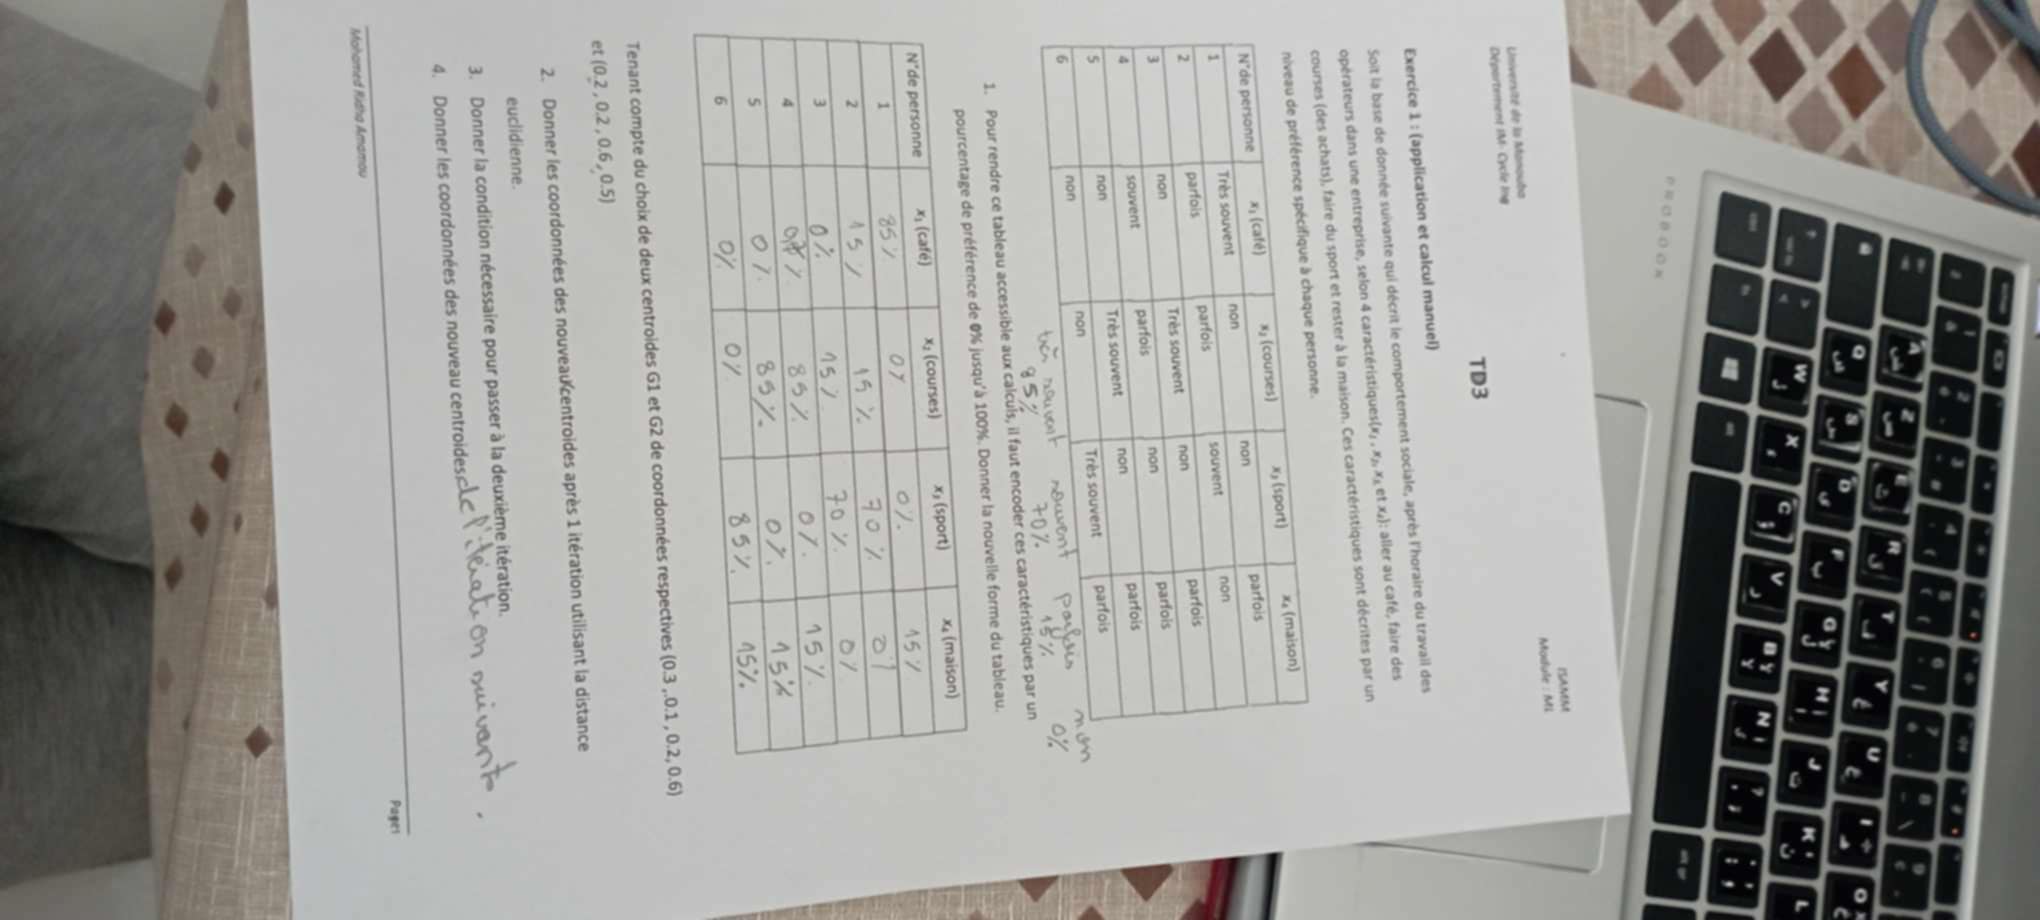 Université de la Manouba
Département IM- Cycle Ing
ISAMM
Module : ML
TD3
Exercice 1 : (application et calcul manuel)
Soit la base de donnée suivante qui décrit le comportement sociale, après l'horaire du travail des
opérateurs dans une entreprise, selon 4 caractéristiques(x₁ , x₂, x₃, et x₄): aller au café, faire des
courses (des achats), faire du sport et rester à la maison. Ces caractéristiques sont décrites par un
niveau de préférence spécifique à chaque personne.
N°de personne x₁ (café) x₂ (courses) x₃ (sport) x₄ (maison)
1 Très souvent non non parfois
2 parfois parfois souvent non
3 non Très souvent non parfois
4 souvent parfois non parfois
5 non Très souvent non parfois
6 non non Très souvent parfois
très souvent souvent parfois non
85% 70% 15% 0%
1. Pour rendre ce tableau accessible aux calculs, il faut encoder ces caractéristiques par un
pourcentage de préférence de 0% jusqu'à 100%. Donner la nouvelle forme du tableau.
N°de personne x₁ (café) x₂ (courses) x₃ (sport) x₄ (maison)
1 85% 0% 0% 15%
2 15% 15% 70% 0%
3 0% 15% 70% 0%
4 % 85% 0% 15%
5 0% 85% 0% 15%
6 0% 0% 85% 15%
Tenant compte du choix de deux centroides G1 et G2 de coordonnées respectives (0.3 ,.0.1 , 0.2, 0.6)
et (0.2 , 0.2 , 0.6 , 0.5)
2. Donner les coordonnées des nouveaux centroides après 1 itération utilisant la distance
euclidienne.
3. Donner la condition nécessaire pour passer à la deuxième itération.
4. Donner les coordonnées des nouveau centroides de l'itération suivante.
Mohamed Ridha Amamou
Page1
PROBOOK